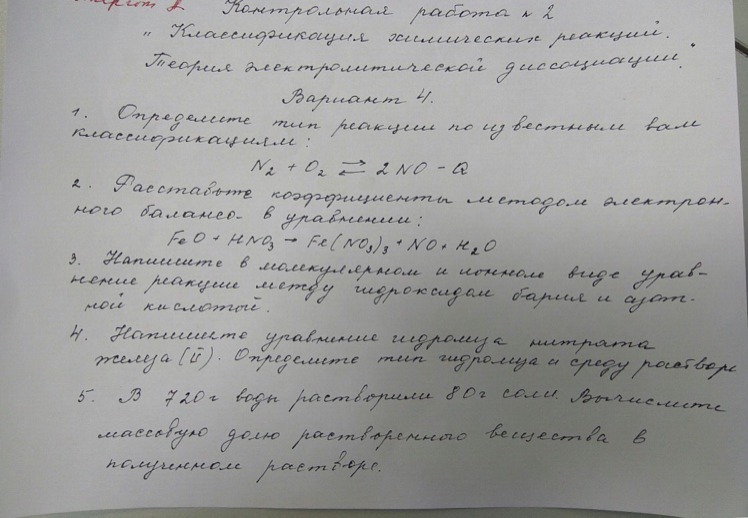 Контрольная работа n 2
„ Классификация химических реакций.
Теория электролитической диссоциации."
Вариант 4.
1. Определите тип реакции по известным вам
классификациям:
N₂ + O₂ ⇄ 2NO - Q
2. Расставьте коэффициенты методом электрон-
ного баланса в уравнении:
FeO + HNO₃ → Fe(NO₃)₃ + NO + H₂O
3. Напишите в молекулярном и ионном виде урав-
нение реакции между гидроксидом бария и азот-
ной кислотой.
4. Напишите уравнение гидролиза нитрата
железа (II). Определите тип гидролиза и среду раствора
5. В 720г воды растворили 80г соли. Вычислите
массовую долю растворенного вещества в
полученном растворе.